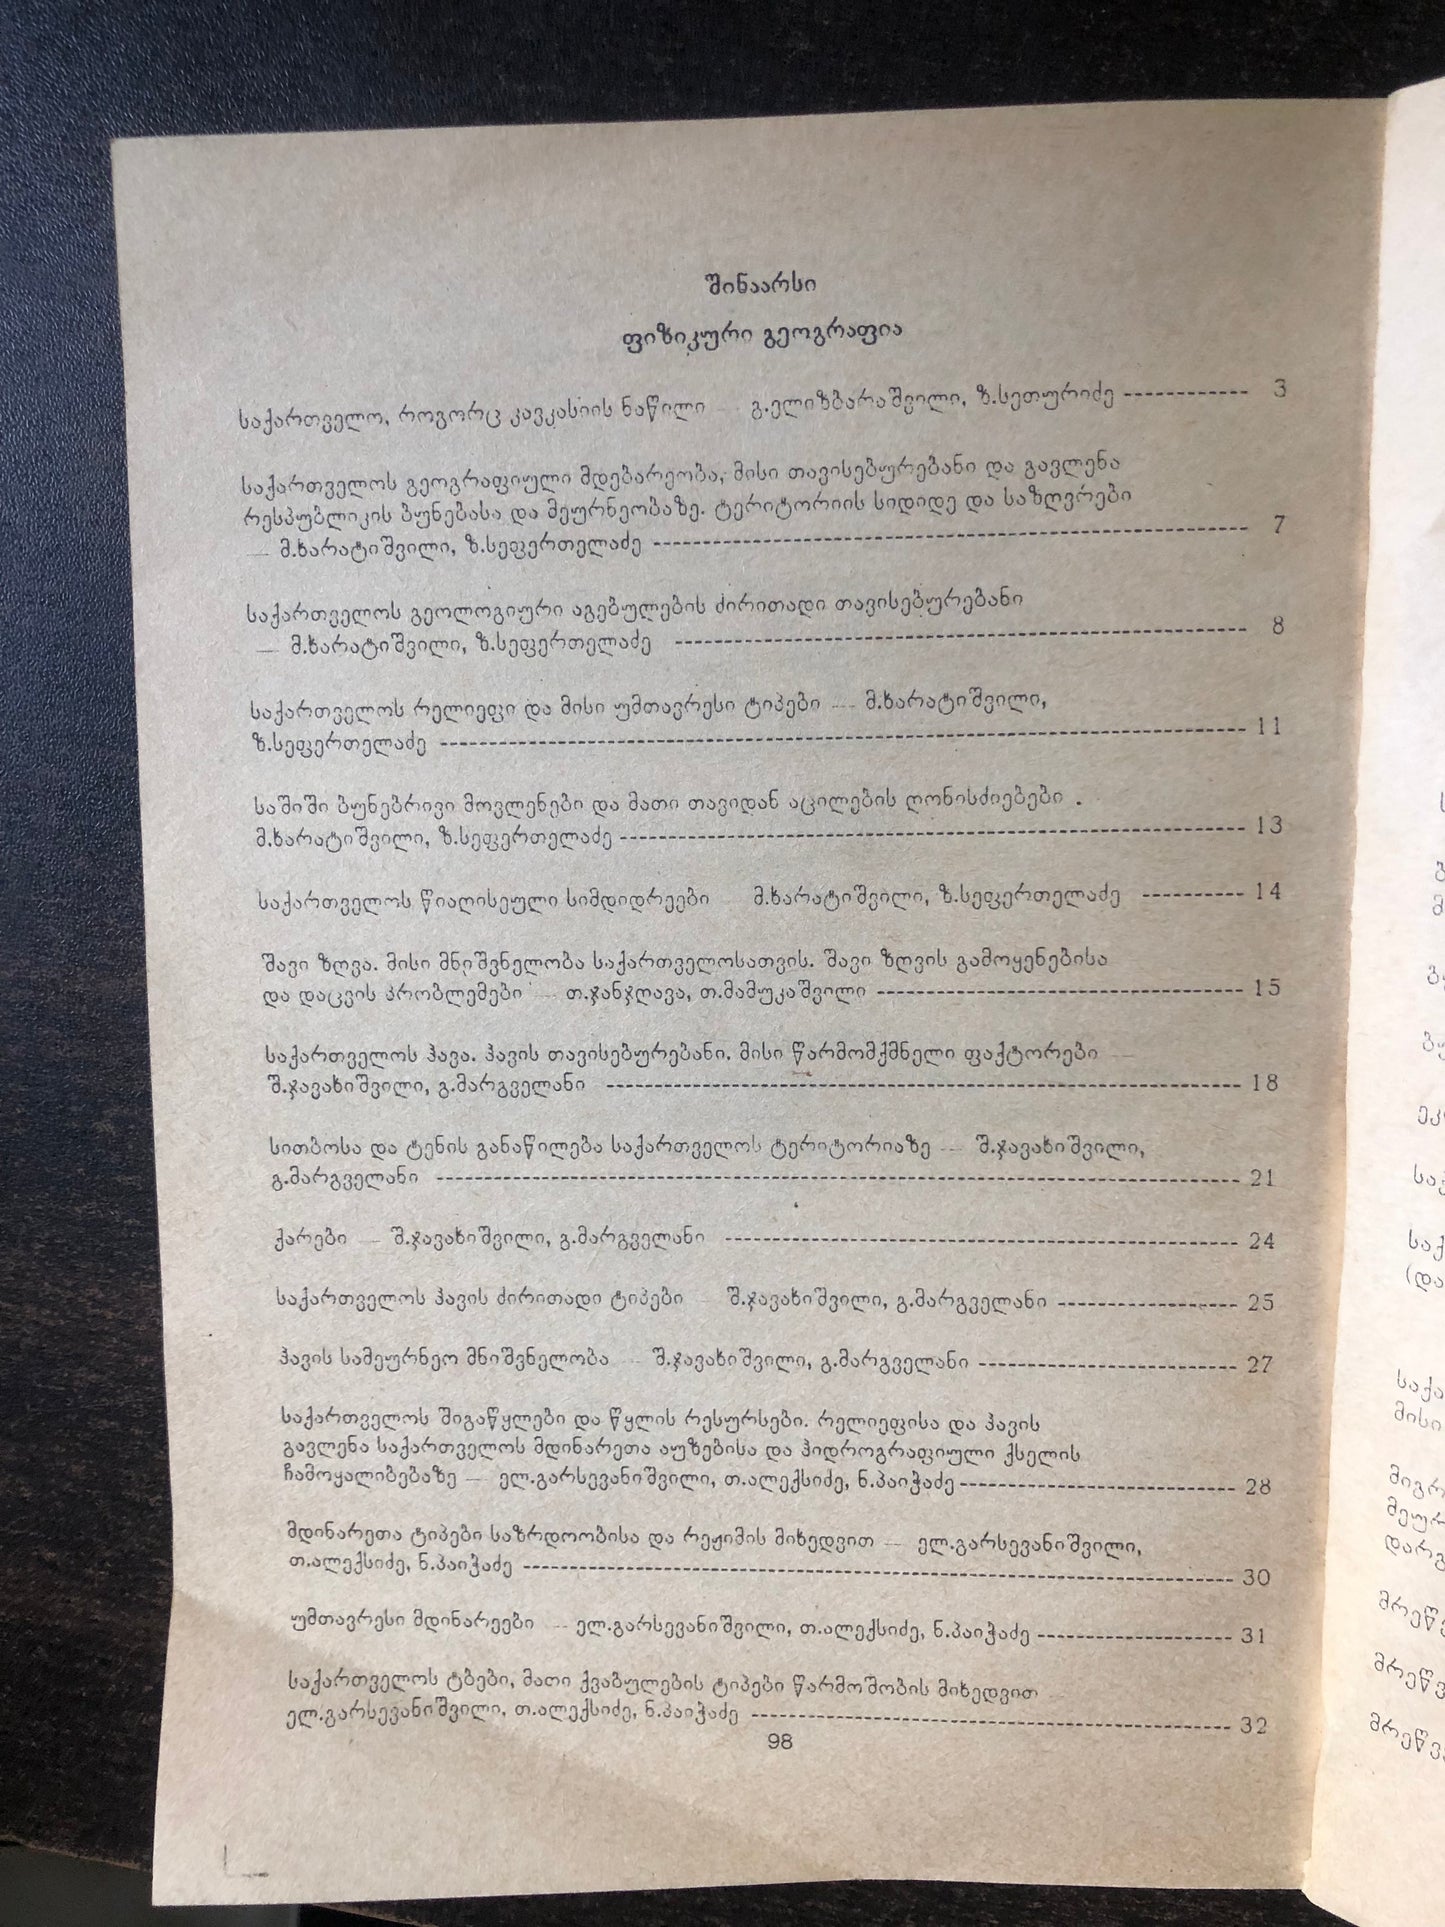 შინაარსი
ფიზიკური გეოგრაფია
საქართველო, როგორც კავკასიის ნაწილი — გ.ელიზბარაშვილი, ზ.სეთურიძე ------------ 3
საქართველოს გეოგრაფიული მდებარეობა, მისი თავისებურებანი და გავლენა
რესპუბლიკის ბუნებასა და მეურნეობაზე. ტერიტორიის სიდიდე და საზღვრები
— მ.ხარატიშვილი, ზ.სეფერთელაძე ------------ 7
საქართველოს გეოლოგიური აგებულების ძირითადი თავისებურებანი
— მ.ხარატიშვილი, ზ.სეფერთელაძე ------------ 8
საქართველოს რელიეფი და მისი უმთავრესი ტიპები — მ.ხარატიშვილი,
ზ.სეფერთელაძე ------------ 11
საშიში ბუნებრივი მოვლენები და მათი თავიდან აცილების ღონისძიებები .
მ.ხარატიშვილი, ზ.სეფერთელაძე ------------ 13
საქართველოს წიაღისეული სიმდიდრეები — მ.ხარატიშვილი, ზ.სეფერთელაძე ---------- 14
შავი ზღვა. მისი მნიშვნელობა საქართველოსათვის. შავი ზღვის გამოყენებისა
და დაცვის პრობლემები — თ.ჯანჯღავა, თ.მამუკაშვილი ------------ 15
საქართველოს ჰავა. ჰავის თავისებურებანი. მისი წარმომქმნელი ფაქტორები —
შ.ჯავახიშვილი, გ.მარგველანი ------------ 18
სითბოსა და ტენის განაწილება საქართველოს ტერიტორიაზე — შ.ჯავახიშვილი,
გ.მარგველანი ------------ 21
ქარები — შ.ჯავახიშვილი, გ.მარგველანი ------------ 24
საქართველოს ჰავის ძირითადი ტიპები — შ.ჯავახიშვილი, გ.მარგველანი ------------ 25
ჰავის სამეურნეო მნიშვნელობა — შ.ჯავახიშვილი, გ.მარგველანი ------------ 27
საქართველოს შიგაწყლები და წყლის რესურსები. რელიეფისა და ჰავის
გავლენა საქართველოს მდინარეთა აუზებისა და ჰიდროგრაფიული ქსელის
ჩამოყალიბებაზე — ელ.გარსევანიშვილი, თ.ალექსიძე, ნ.პაიჭაძე ------------ 28
მდინარეთა ტიპები საზრდოობისა და რეჟიმის მიხედვით — ელ.გარსევანიშვილი,
თ.ალექსიძე, ნ.პაიჭაძე ------------ 30
უმთავრესი მდინარეები — ელ.გარსევანიშვილი, თ.ალექსიძე, ნ.პაიჭაძე ------------ 31
საქართველოს ტბები, მათი ქვაბულების ტიპები წარმოშობის მიხედვით —
ელ.გარსევანიშვილი, თ.ალექსიძე, ნ.პაიჭაძე ------------ 32
98